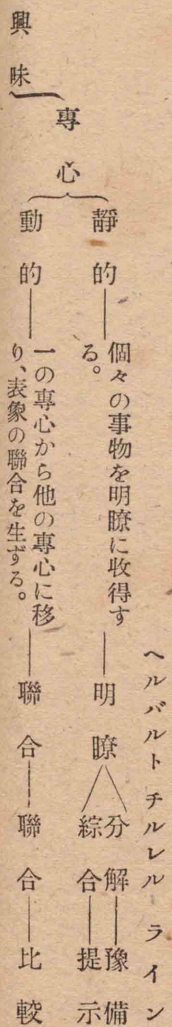 ヘルバルト チルレル ライン
靜的―個々の事物を明瞭に收得す
る。―明瞭
分解―豫備
綜合―提示
專心
動的―一の專心から他の專心に移
り、表象の聯合を生ずる。―聯合―聯合―比較
興味